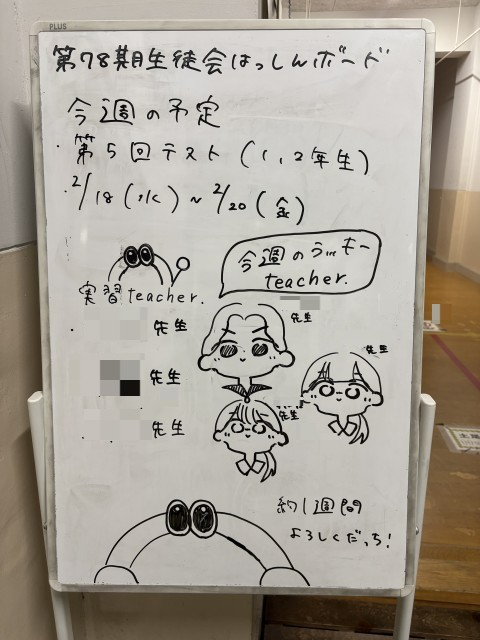 PLUS
第78期生徒会はっしんボード
今週の予定
・第5回テスト(1,2年生)
2/18(水)~2/20(金)
今週のう…キー
teacher.
実習teacher.
・先生
先生
先生
先生
先生
・先生
約1週間
よろしくだっち!